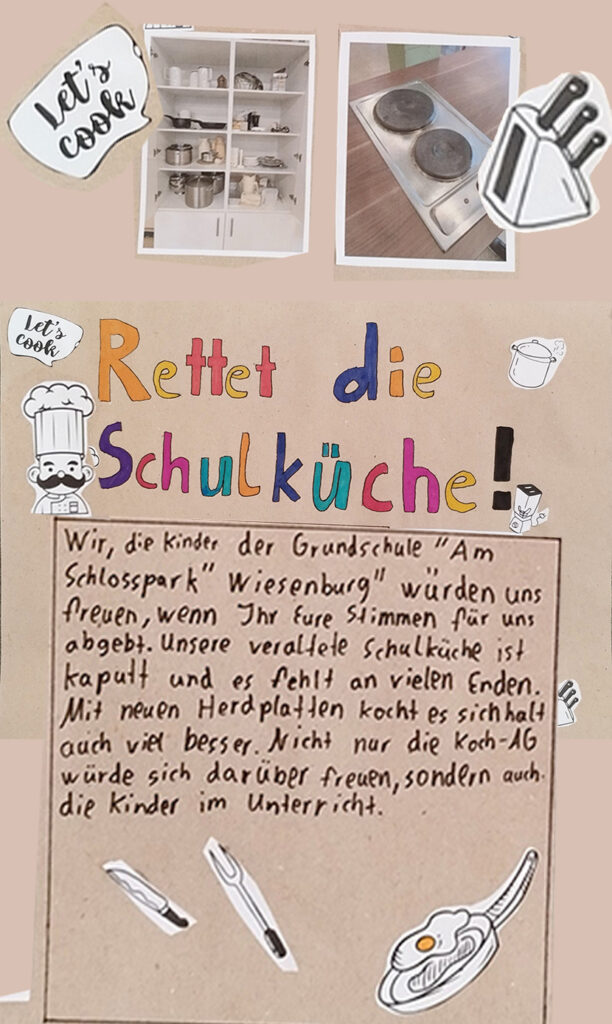 Let's
cook
Let's
cook
Rettet die
Schulküche!
Wir, die Kinder der Grundschule "Am
Schlosspark" Wiesenburg" würden uns
freuen, wenn Ihr Eure Stimmen für uns
abgebt. Unsere veraltete Schulküche ist
kaputt und es fehlt an vielen Enden.
Mit neuen Herdplatten kocht es sich halt
auch viel besser. Nicht nur die Koch-AG
würde sich darüber freuen, sondern auch
die Kinder im Unterricht.